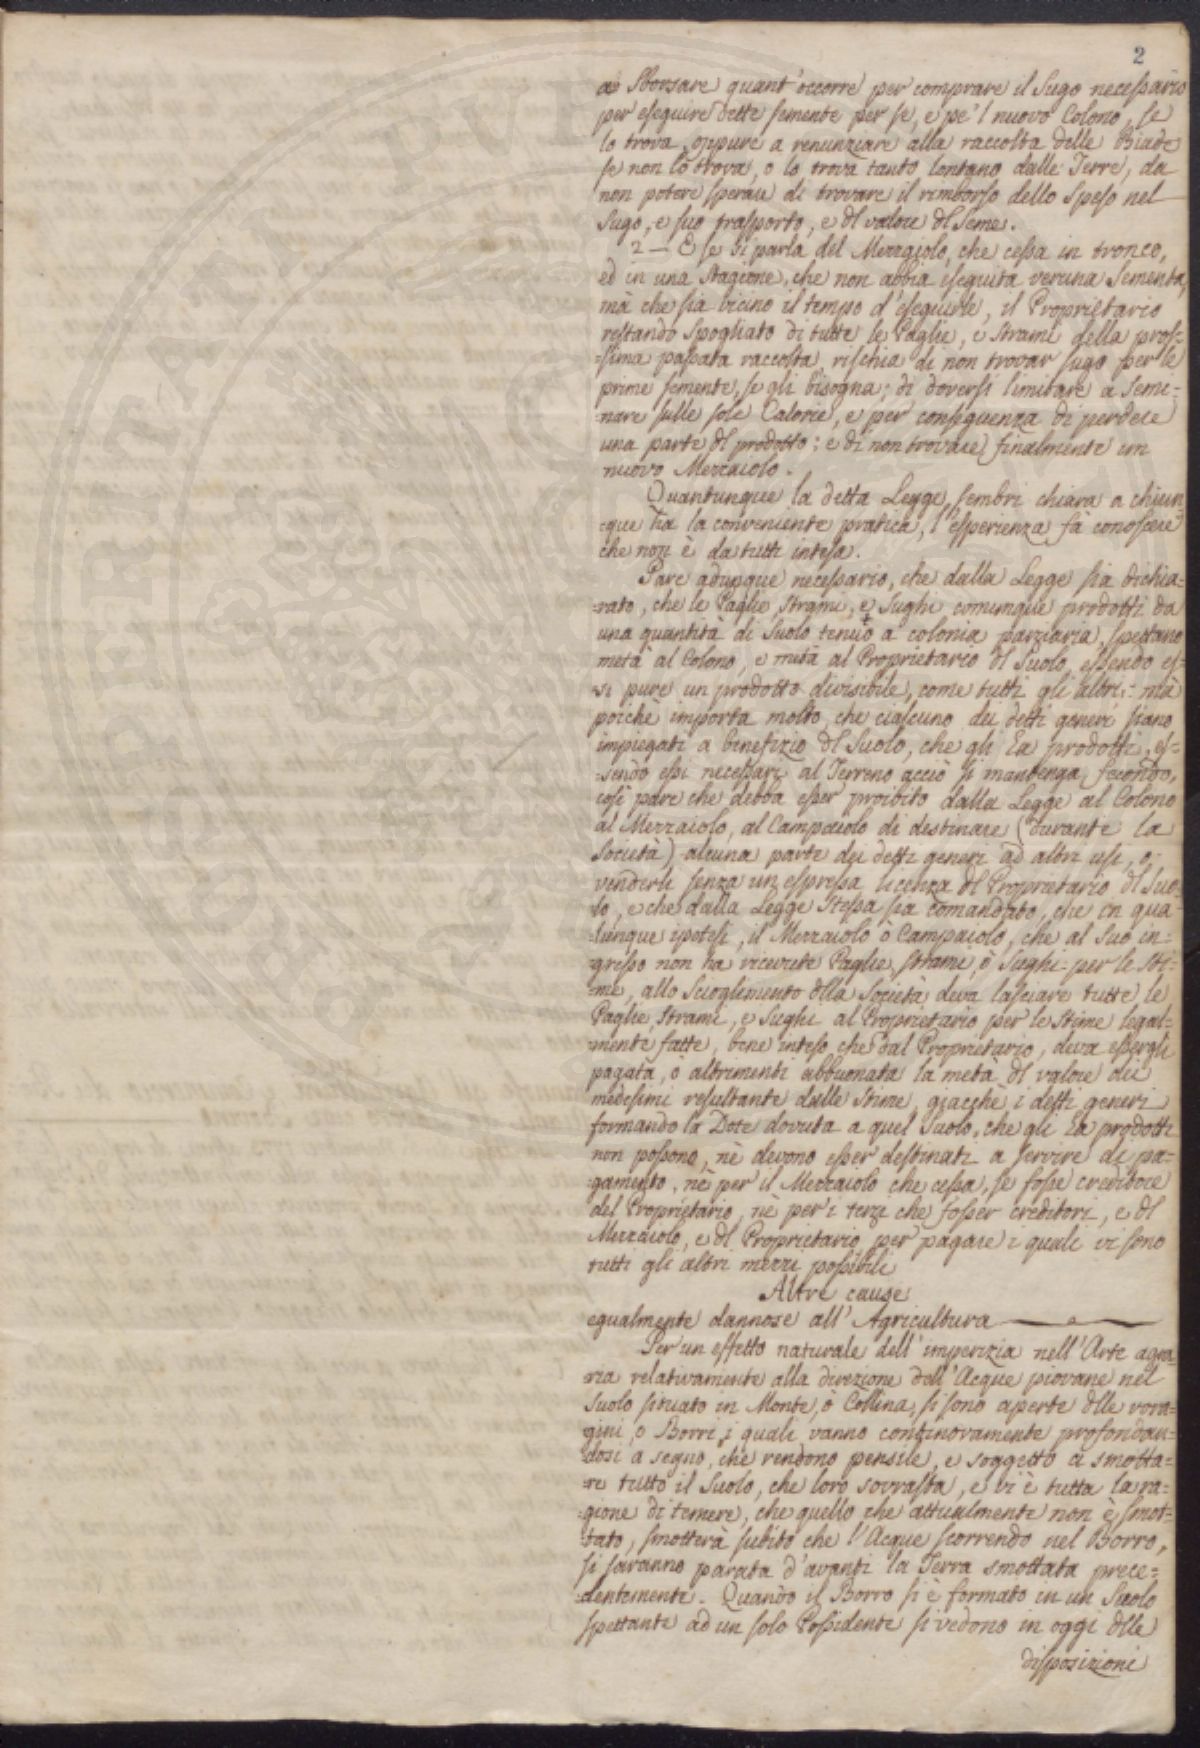 2
a Sborsare quant'occorre per comprare il Sugo necessario
per eseguire dette semente per se, e pe'l nuovo Colono, se
lo trova, oppure a renunziare alla raccolta delle Biade
se non lo trova, o lo trova tanto lontano dalle Terre, da
non potere sperare di trovare il rimborso dello speso nel
Sugo, e suo trasporto, e dl valore dl Seme.
2 — E se si parla del Mezzaiolo, che cessa in tronco,
ed in una Stagione, che non abbia eseguita veruna Sementa,
mà che sia vicino il tempo d'eseguirle, il Proprietario
restando Spogliato di tutte le Paglie, e Strami della pros=
=sima passata raccolta, rischia di non trovar sugo per le
prime semente, se gli bisogna; di doversi limitare a Semi=
nare sulle sole Calorie, e per conseguenza di perdere
una parte dl prodotto; e di non trovare finalmente un
nuovo Mezzaiolo.
Quantunque la detta Legge sembri chiara a chiun=
=que ha la conveniente pratica, l'esperienza fà conoscere
che non è da tutti intesa.
Pare adunque necessario, che dalla Legge sia dichia=
=rato, che le Paglie, Strami, e Sughi comunque prodotti da
una quantità di Suolo tenuto a colonia parziaria, spettano
metà al Colono, e metà al Proprietario dl Suolo, essendo es=
si pure un prodotto divisibile, come tutti gli altri: mà
poichè importa molto, che ciascuno dei detti generi siano
impiegati a benefizio dl Suolo, che gli ha prodotti, es=
=sendo essi necessari al Terreno acciò si mantenga fecondo,
così pare che debba esser proibito dalla Legge al Colono
al Mezzaiolo, al Campaiolo di destinare (durante la
Società) alcuna parte dei detti generi ad altri usi, o
venderli senza un espressa licenza dl Proprietario dl Suo=
lo, e che dalla Legge Stessa sia comandato, che in qua=
=lunque ipotesi, il Mezzaiolo ò Campaiolo, che al Suo in=
=gresso non ha ricevute Paglie, Strami, ò Sughi per le Sti=
=me, allo Scioglimento dlla Società deva lasciare tutte le
Paglie, Strami, e Sughi al Proprietario per le Stime legal=
=mente fatte, bene inteso che dal Proprietario, deva essergli
pagata, ò altrimenti abbuonata la metà dl valore dei
medesimi resultante dalle Stime, giacchè i detti generi
formando la Dote dovuta a quel Suolo, che gli ha prodotti
non possono, nè devono esser destinati a servire di pa=
=gamento, nè per il Mezzaiolo che cessa, se fosse creditore
del Proprietario, nè per i terzi che fosser creditori, e dl
Mezzaiolo, e dl Proprietario per pagare i quali vi sono
tutti gli altri mezzi possibili
Altre cause
egualmente dannose all'Agricultura
Per un effetto naturale dell'imperizia nell'Arte agra=
=ria relativamente alla direzione dell'Acque piovane nel
Suolo situato in Monte, ò Collina, si sono aperte dlle vora=
gini, o Borri, i quali vanno continovamente profondan=
dosi a segno, che rendono pensile, e soggetto a smotta=
=re tutto il Suolo, che loro sovrasta, e vi è tutta la ra=
=gione di temere, che quello che attualmente non è smot=
tato, smotterà subito che l'Acque scorrendo nel Borro,
si saranno parata d'avanti la Terra smottata prece=
=dentemente. Quando il Borro si è formato in un Suolo
spettante ad un solo Possidente si vedono in oggi dlle
disposizioni